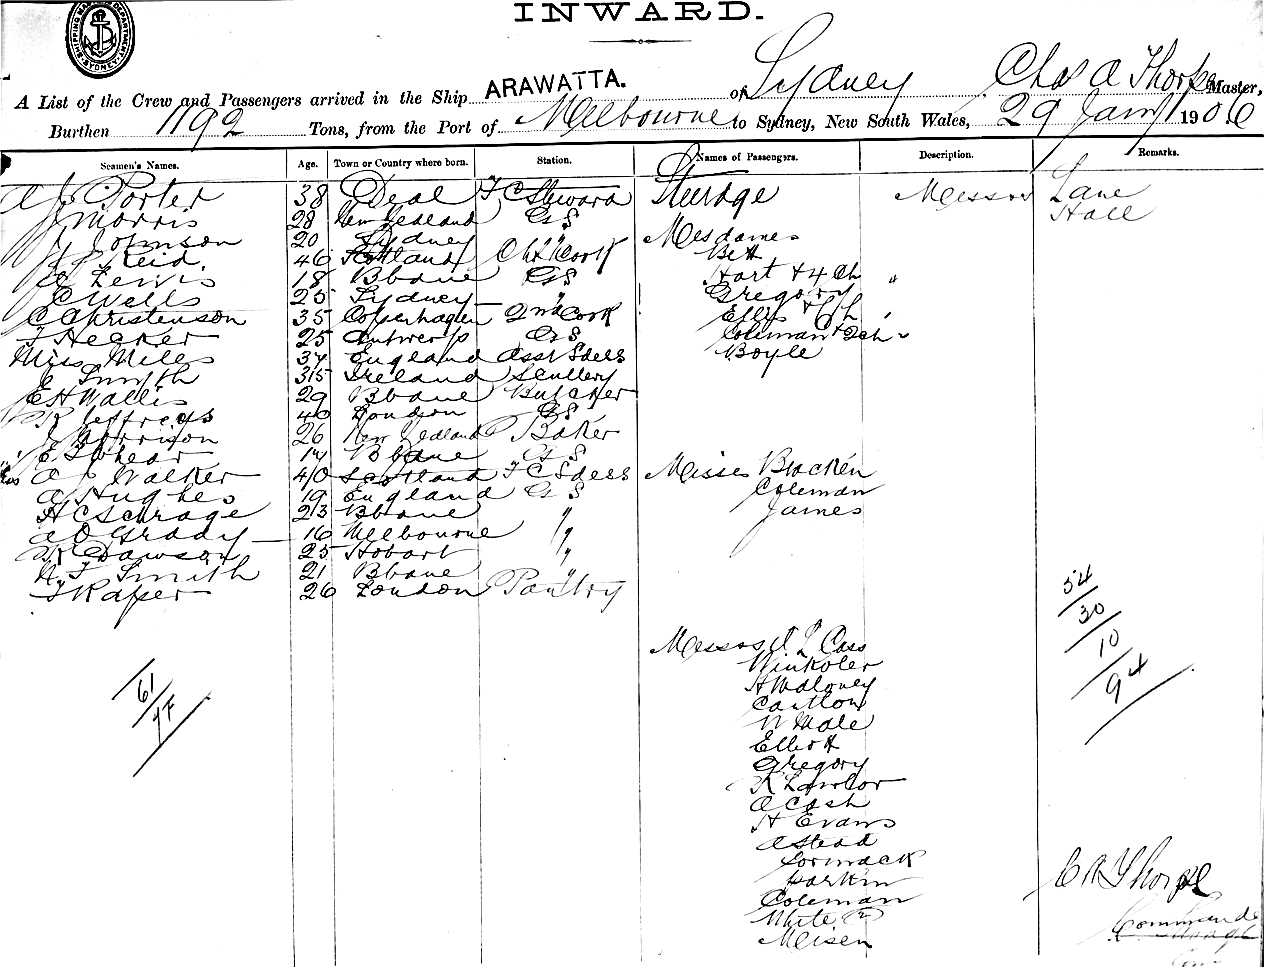 INWARD.
SHIPPING MASTER'S DEPARTMENT. SYDNEY
A List of the Crew and Passengers arrived in the Ship ARAWATTA. of Sydney Chas A Thorpe Master,
Burthen 1192 Tons, from the Port of Melbourne to Sydney, New South Wales, 29 Jany 1906
Seamen's Names. Age. Town or Country where born. Station. Names of Passengers. Description. Remarks.
A J Porter 38 Deal F C Steward Steerage Messrs Lane
J Morris 28 New Zealand GS Hall
J Johnson 20 Sydney " Mesdames
Reid 46 Scotland Ch Cook Bett
Lewis 18 Bbane GS Hart & 4 Ch "
C Wells 25 Sydney " Gregory
C Christenson 35 Copenhagen 2nd Cook Ellis & Ch "
T Hecker 25 Antwerp GS Coleman & 2 ch "
Miss Miles 37 England Asst Sdess Boyle
J Smyth 35 Ireland Scullery
E H Wallis 29 Bbane Butcher
R Jeffreys 40 London GS
J Garrison 26 New Zealand Baker
E Bbane GS
A J Walker 40 Scotland F C Sdess Misses Bracken
A Hughes 19 England GS Coleman
H C Schrage 23 Bbane " James
A O Grady 16 Melbourne "
Dawson 25 Hobart "
Smith 21 Bbane "
T Raper 26 London Pantry
54
30
10
94
Messrs J L Cass
Winkoler
H Maloney
Cantlow
N Male
Elliott
Gregory
R Lawlor
A Cash
H Evans
A Stead
Cormack
Parkin
Coleman
White
Meisen
61
C A Thorpe